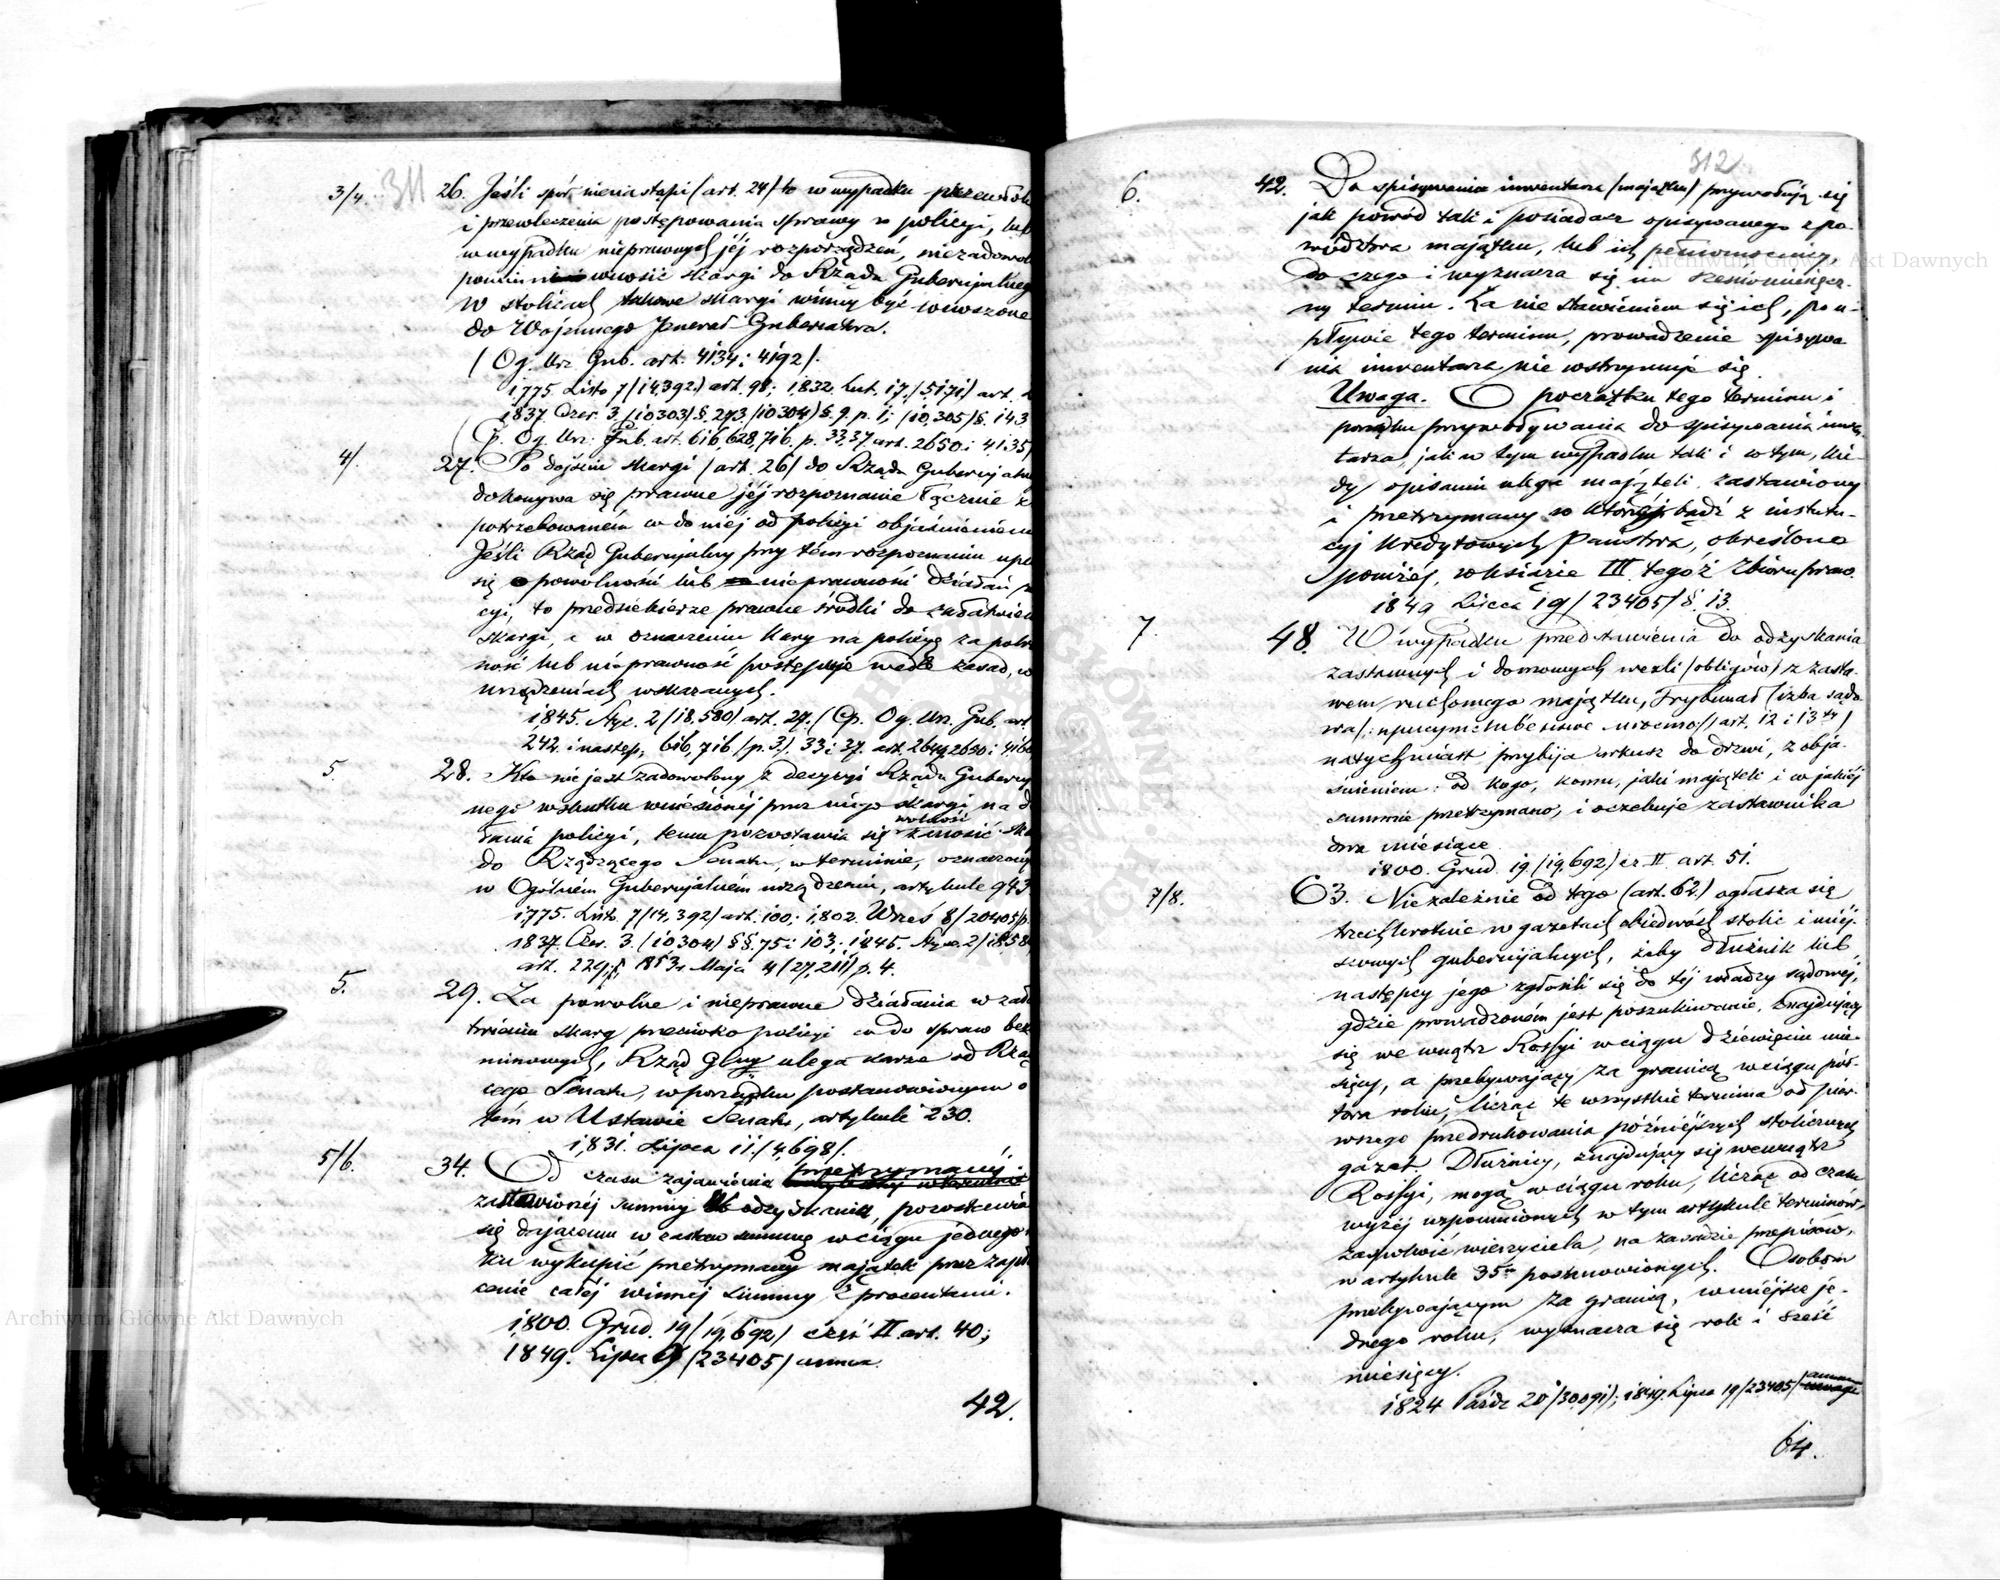 311
3/4. 26. Jeśli spór nienastąpi (art. 24) to w wypadku
i przewleczenia postępowania sprawy w policyi, lub
w wypadku nieprawnych jéj rozporządzeń,
wnosić skargi do Rządu
W stolicach takowe skargi winny być wnoszone
do Wojennego Jenerał-Gubernatora.
(Og. Urz. Gub. art. 4134 i 4192).
1775. Listo. 7 (14,392) art. 98; 1832. Lut. 17. (5171) art.
1837 Czer. 3. (10303) §. 273 (10304) §. 9. p. 1; (10,305) §. 143
(Cp. Og. Urz. Gub. art. 616, 628, 716. p. 33, 37 art. 2650 i 4135)
4/. 27. Po dojściu skargi (art. 26) do Rządu
dokonywa się prawne jéj rozpoznanie łącznie z
potrzebowaném co do niej od policyi objaśnieniem
Jeśli Rząd Gubernjalny przy tém rozpoznaniu
się o powolności lub nieprawności działań
cyi, to przedsiebierze prawne środki do
skargi, a w oznaczeniu kary na policyę za
ność lub nieprawność postępuje wedle zasad, w
urządzeniach wskazanych.
1845. Stycz. 2 (18,580) art. 29. (Cp. Og. Urz. Gub. art
242. i następ; 616, 716 (p. 3). 33 i 37. art. 2649, 2650 i
5. 28. Kto nie jest zadowolony z decyzyi Rządu
nego wskutku wniesionéj przez niego skargi na
łania policyi, temu pozostawia się wolność
do Rządzącego Senatu, w terminie,
w Ogólném Gubernjalném urządzeniu, artykule 943
1775. Listo. 7 (14,392) art. 100; 1802. Wrześ 8 (20405) p.
1837. Czer. 3. (10304) §§. 75 i 103; 1845. Stycz. 2 (18,580
art. 229; 1853 Maja 4 (27,211) p. 4.
5. 29. Za powolne i nieprawne działania w
twieniu skarg przeciwko policyi co do spraw
Rząd Glny ulega karze od
cego Senatu, w porządku postanowionym o
tém w Ustawie Senatu, artykule 230.
1831. Lipca 11. (4,698).
5/6. 34. Od czasu zajawienia przetrzymanéj
zastawionéj summy do odzyskania, pozostawia
się dającemu w zastaw summę w ciągu jednego
ku wykupić przetrzymany majątek przez
cenie całéj winnéj summy z procentami.
1800. Grud. 19 (19,692) część II art. 40;
1849. Lipca 19 (23405) annex.
42.
312
6. 42. Do spisywania inwentarza (majątku) przywołują się
jak powód tak i posiadacz opisywanego z po-
wództwa majątku, lub ich pełnomocnicy,
do czego i wyznacza się im sześciomiesięcz-
ny termin. Za nie stawieniem się ich, po u-
pływie tego terminu, prowadzenie spisywa
nia inwentarza nie wstrzymuje się.
Uwaga. O początku tego terminu i
porządku przywoływania do spisywania inwen
tarza, jak w tym wypadku tak i w tym, kie-
dy opisaniu ulega majątek zastawiony
i przetrzymany w któréj bądź z instytu-
cyj kredytowych Państwa, określono
poniżéj, w księdze III. tegoż Zbioru praw.
1849 Lipca 19 (23405) §. 13.
7. 48. W wypadku przedstawienia do odzyskania
zastawnych i domowych wexli (obligów) z zasta-
wem ruchomego majątku, Trybunał (izba sądo-
art. 12 i 13ty)
natychmiast przybija arkusz do drzwi, z obja-
śnieniem: od kogo, komu, jaki majątek i w jakiéj
summie przetrzymano, i oczekuje zastawnika
dwa miesiące.
1800. Grud. 19 (19,692) cz. II. art. 51.
7/8. 63. Niezależnie od tego (art. 62.) ogłasza się
trzechkrotnie w gazetach obiedwóch stolic i miéj-
scowych gubernijalnych, żeby dłużnik lub
następcy jego zgłosili się do téj władzy sądowéj,
gdzie prowadzoném jest poszukiwanie, znajdujący
się we wnątrz Rossyi w ciągu dziewięciu mie-
sięcy, a przebywający za granicą w ciągu pół-
tora roku, licząc te wszystkie termina od pier-
wszego przedrukowania późniejszych stołecznych
gazet. Dłużnicy, znajdujący się wewnątrz
Rossyi, mogą w ciągu roku, licząc od czasu
wyżéj wzpomnionych w tym artykule terminów,
zaspokoić wierzyciela, na zasadzie przepisów,
w artykule 35m postanowionych. Osobom
przebywającym za granicą, w miéjsce je-
dnego roku, wyznacza się rok i sześć
miesięcy.
1824 Paźdz 20 (30,091); 1849. Lipca 19 (23405) annex
64.